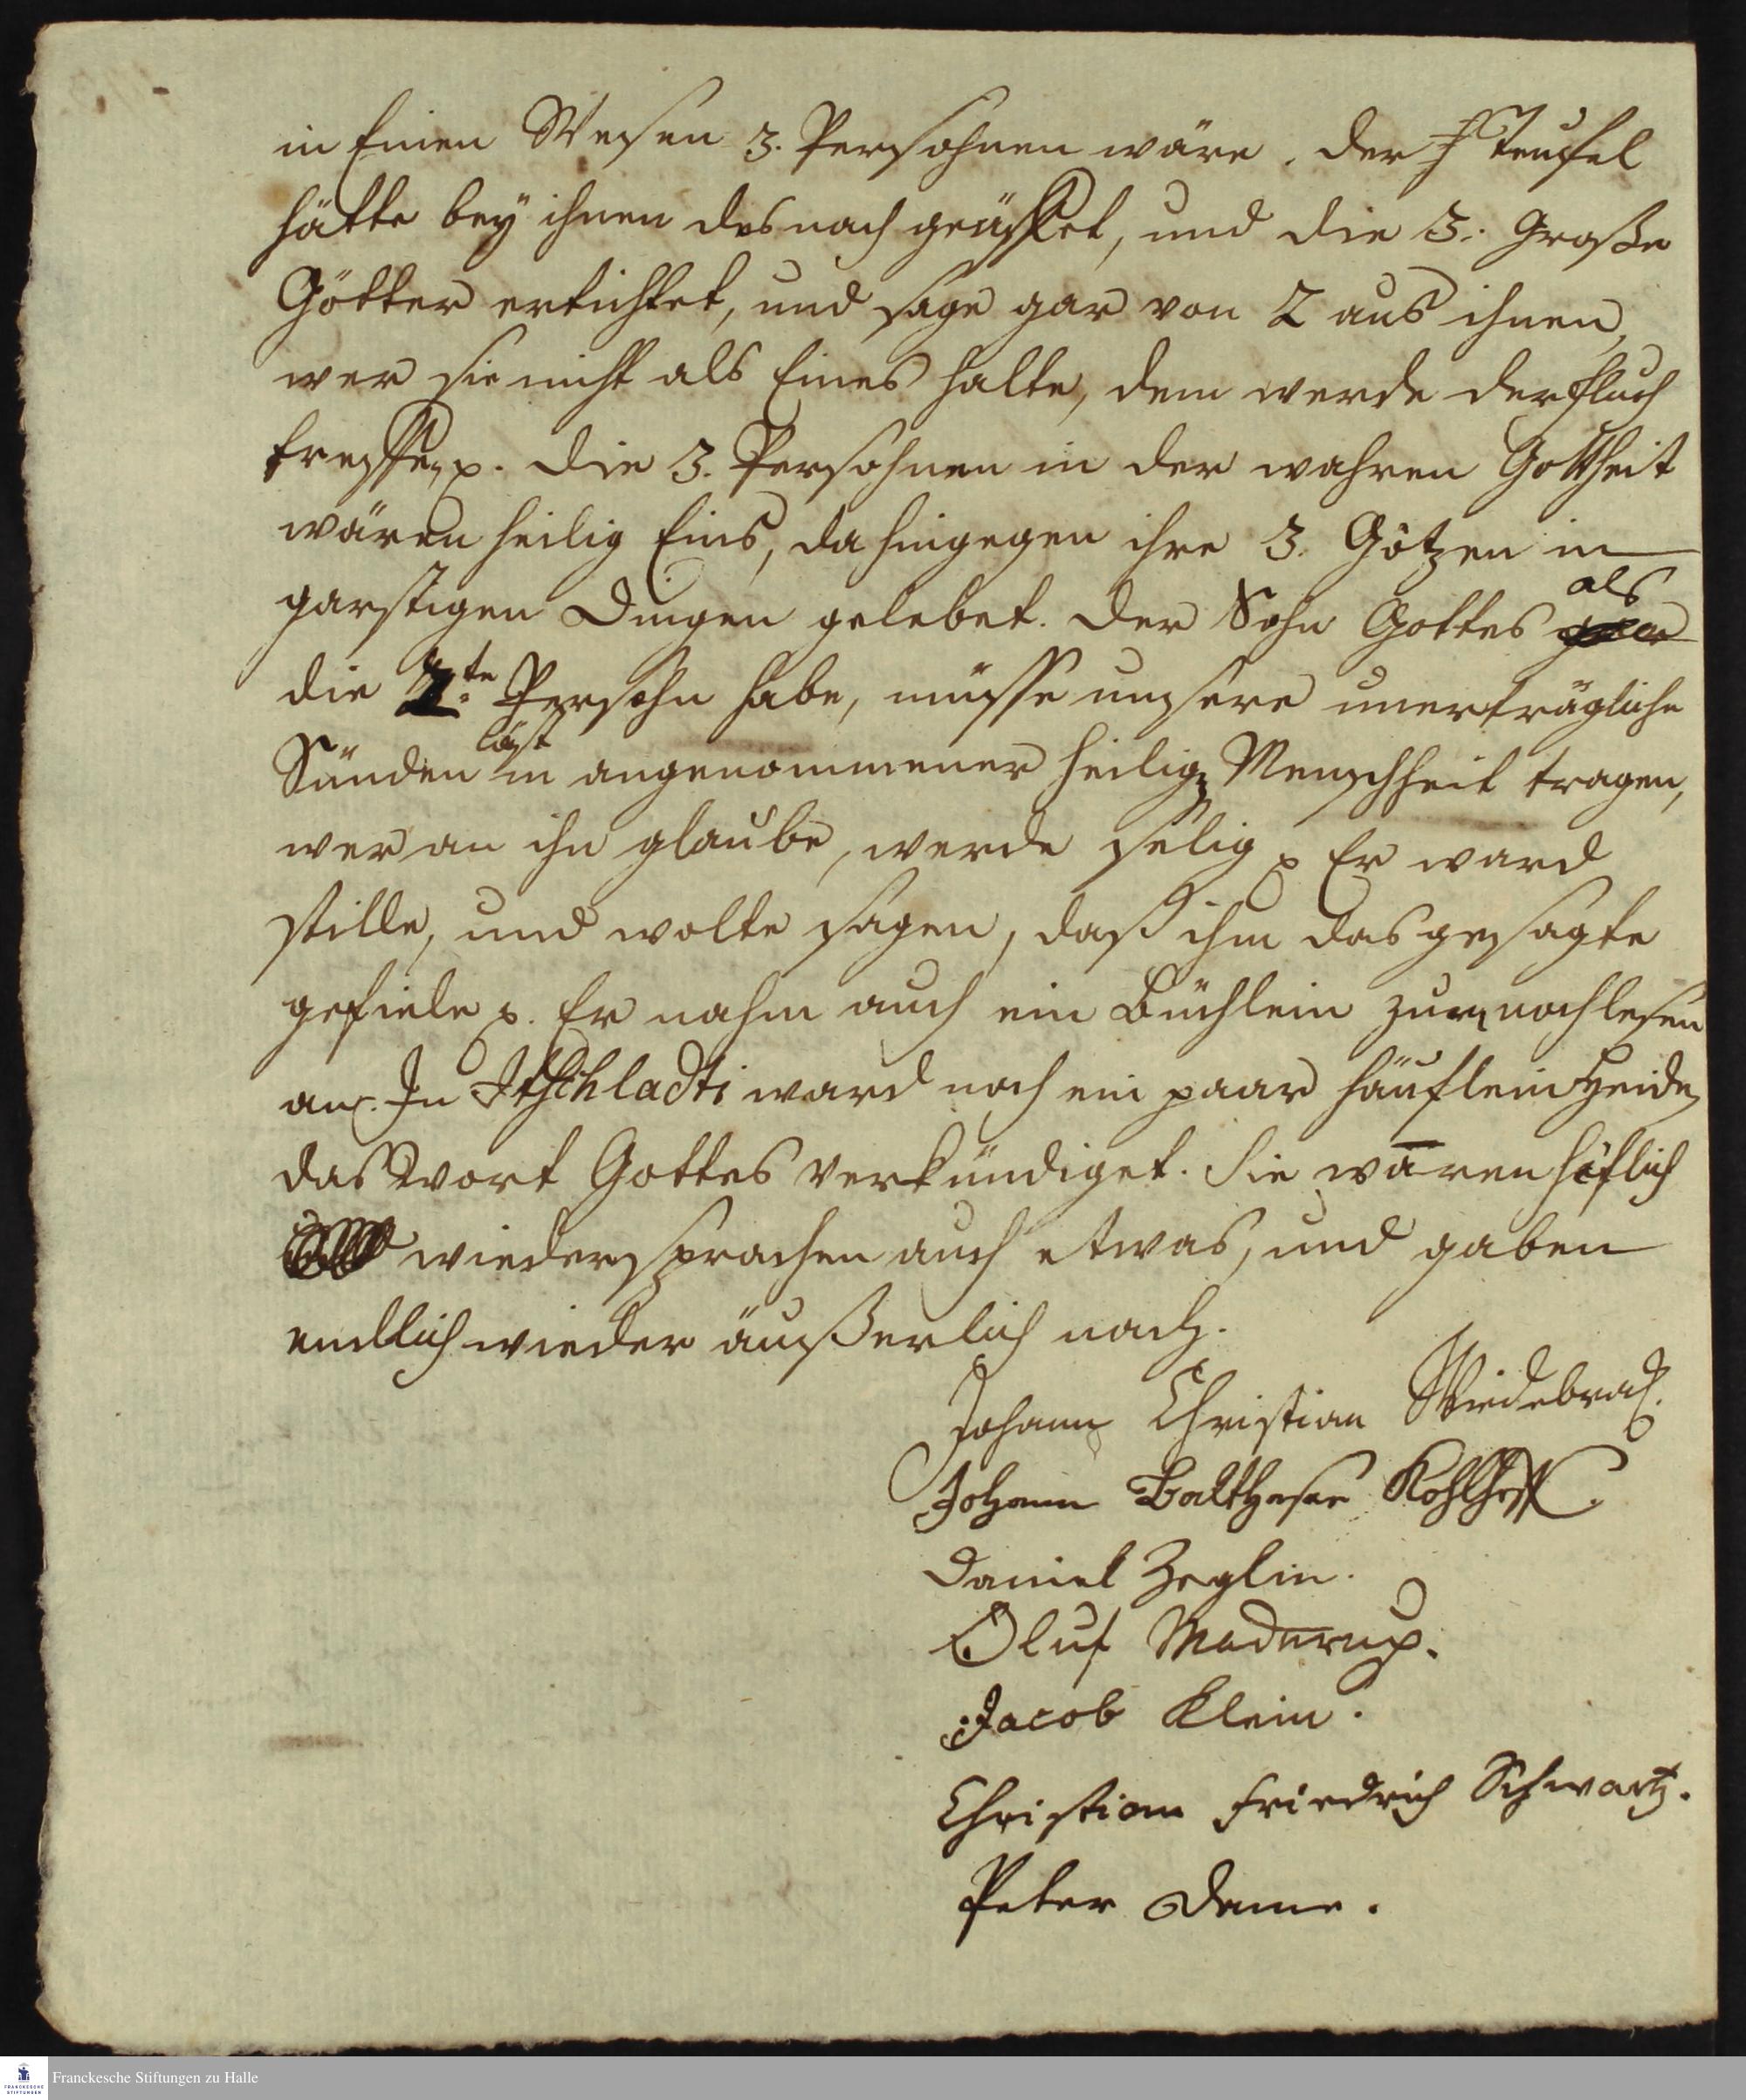 in Einen Wesen 3. Persohnen wäre. Der Teufel
hätte bey ihnen des nach geäffet, und die 3. Große
Götter ertichtet, und sage gar von 2 aus ihnen,
wer sie nicht als Eines halte, dem werde der Fluch
treffen, p. Die 3. Persohnen in der wahren Gottheit
wären heilig Eins, da hingegen ihre 3. Götzen in
garstigen Dingen gelebet. Der Sohn Gottes als
die 2te Persohn habe, müsse unsere unerträgliche
Sünden last in angenommener heilig Menschheit tragen,
wer an ihn glaube, werde selig p Er ward
stille, und wolte sagen, daß ihm das gesagte
gefiele p. Er nahm auch ein Büchlein zum nachlesen
an. In Itschiladti ward noch ein paar häuflein Heiden
das Wort Gottes verkündiget. Sie waren höflich
wiedersprachen auch etwas, und gaben
endlich wieder äußerlich nach.
Johann Christian Wiedebrock.
Johann Balthasar Kohlhoff.
Daniel Zeglin.
Oluf Maderup.
Jacob Klein.
Christian Friedrich Schwartz.
Peter Dame.
Franckesche Stiftungen zu Halle
FRANCKESCHE
STIFTUNGEN